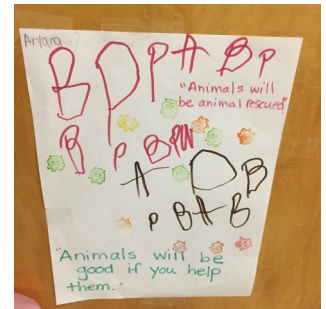 Aryana
B P P A B P
"Animals will
be animal rescued"
B P B P W
A D B
P B A B
"Animals will be
good if you help
them."